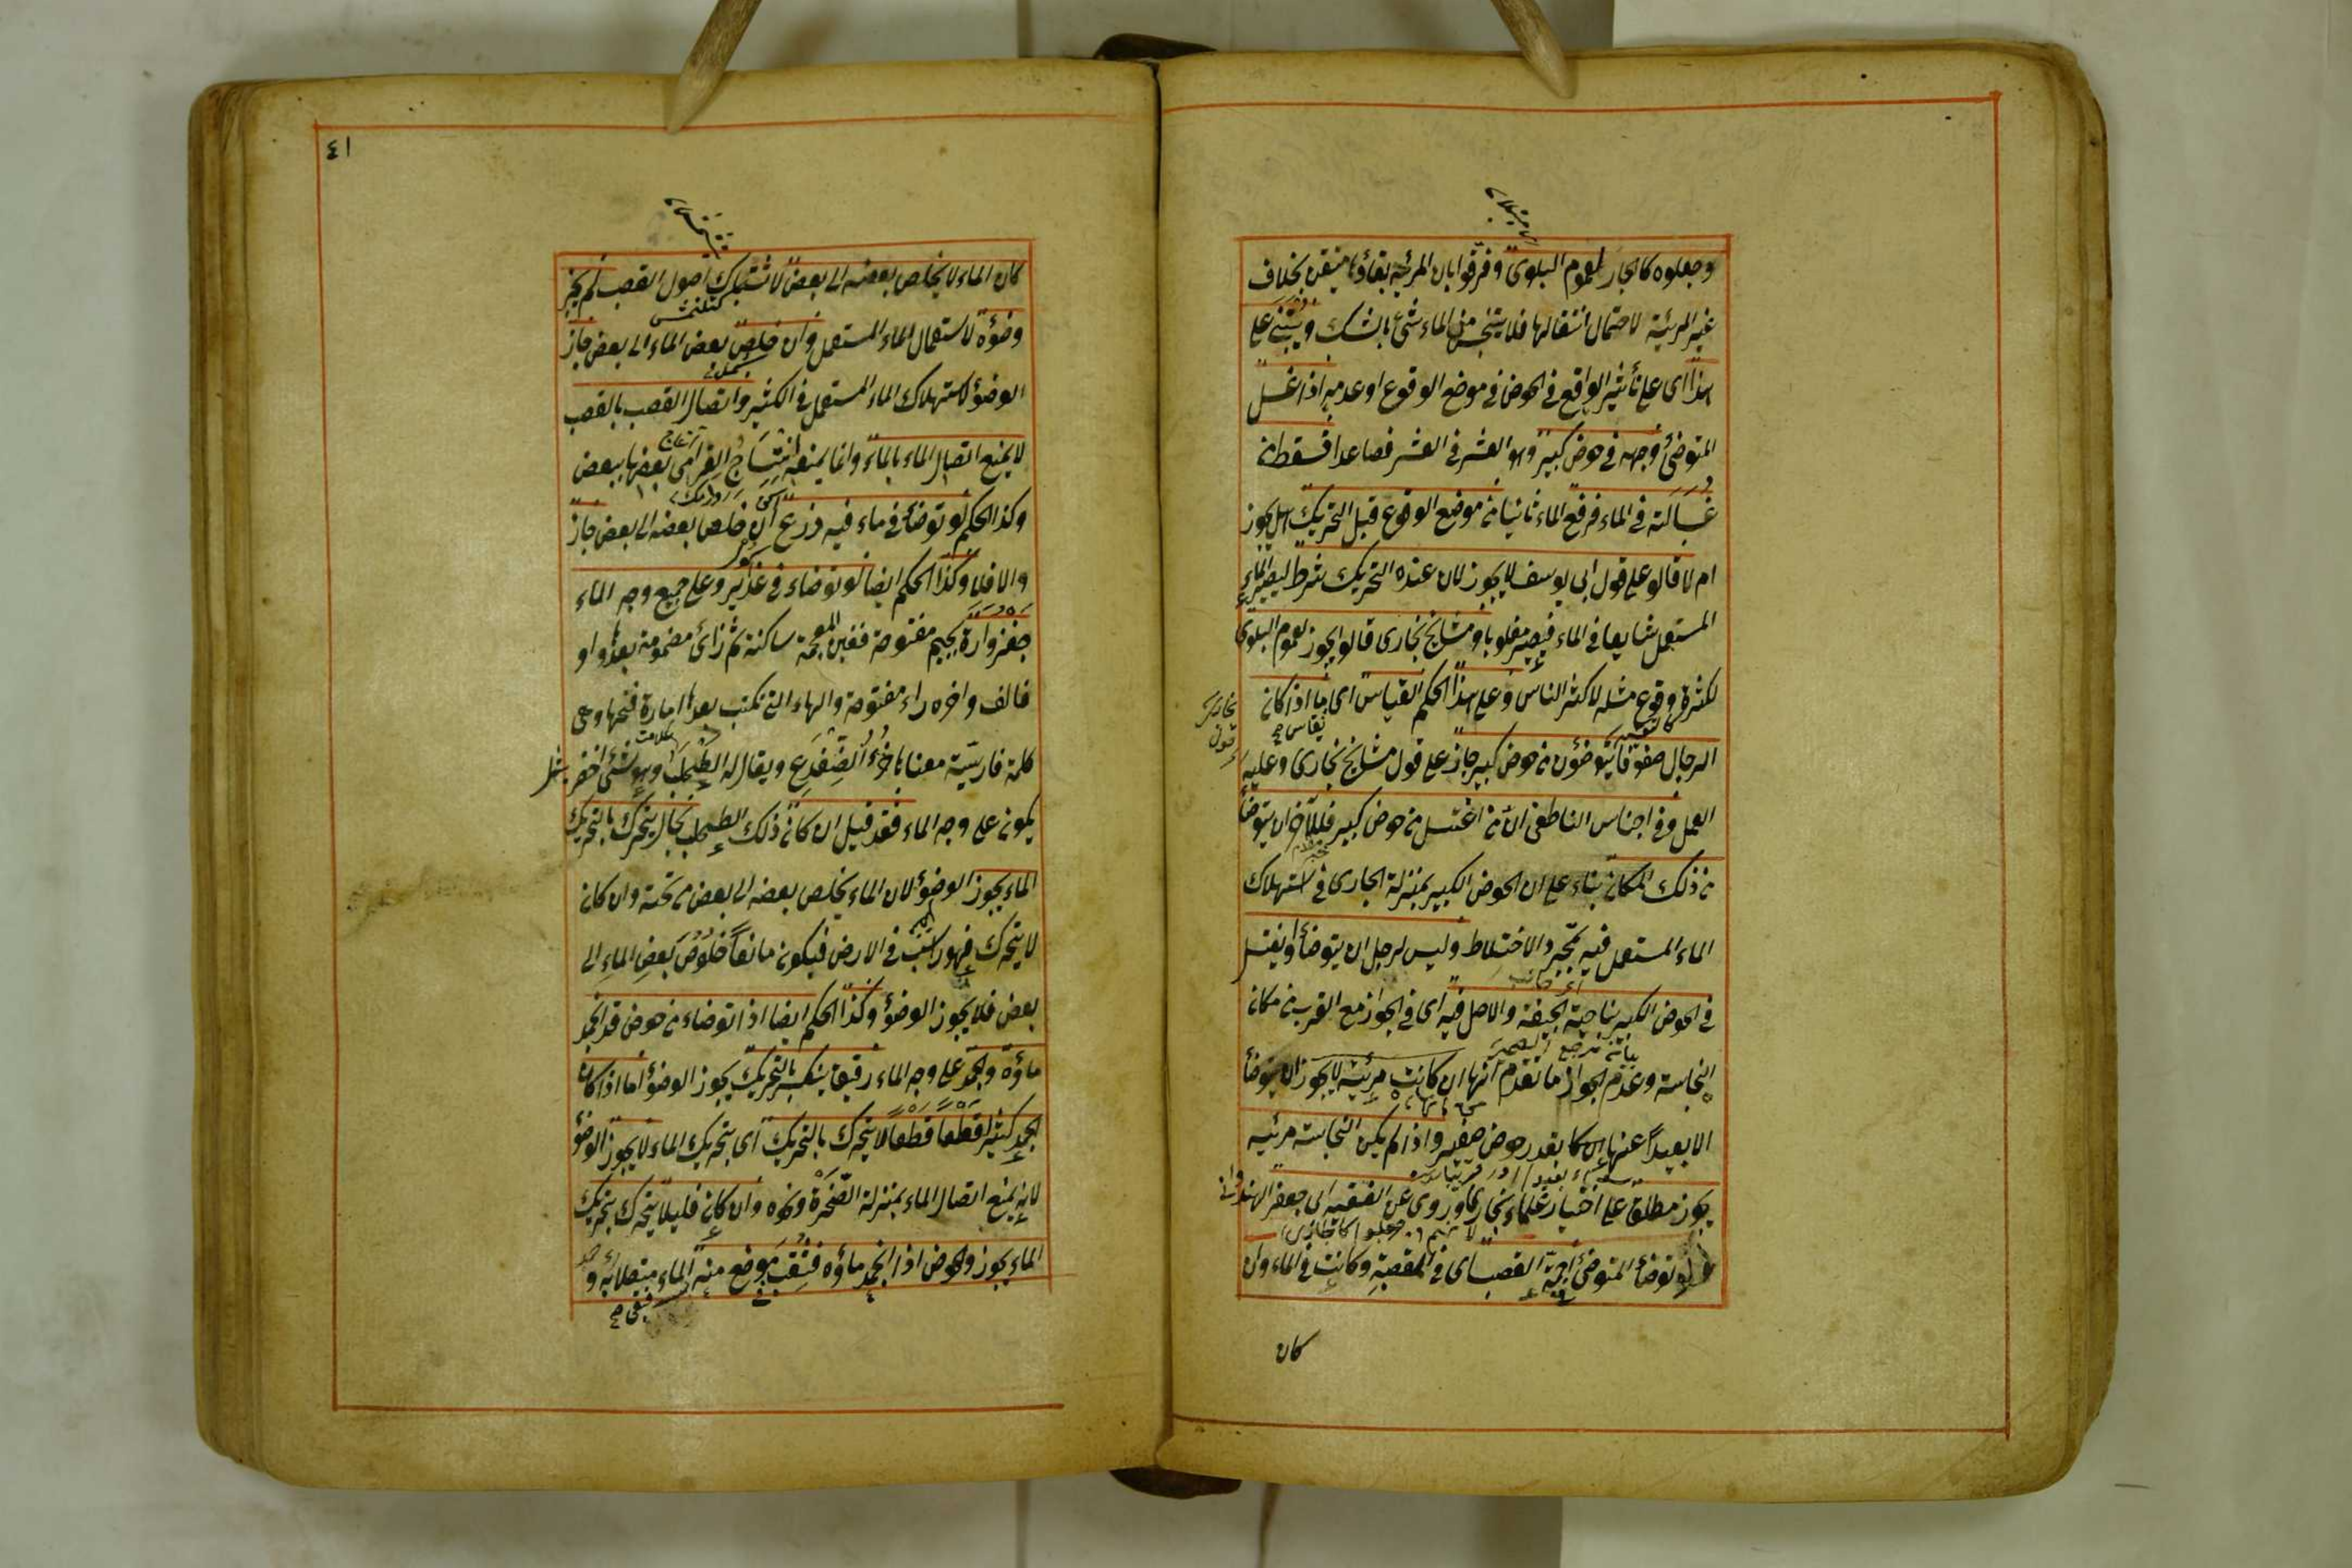 وجعلوه كالجار لعموم البلوى وفرقوا بان المرئية بقاؤها متيقن بخلاف
غير المرئية لاحتمال انتقالها فلا يتنجس من الماء شئ بالشك ويبتنى على
هذا اى على تأثير الواقع فى الحوض فى موضع الوقوع او عدمه اذا غسل
المتوضئ وجهه فى حوض كبير وهو العشر فى العشر فصاعدا فسقط من
غسالته فى الماء فرفع الماء ثانيا من موضع الوقوع قبل التحريك هل يجوز
ام لا قالو على قول ابى يوسف لا يجوز لان عنده التحريك شرط ليصير الماء
المستعمل شايعا فى الماء فيصير مغلوبا ومشايخ بخارى قالوا يجوز لعموم البلوى
لكثرة وقوع مثله لاكثر الناس وعلى هذا الحكم القياس اى ما اذا كان
الرجال صفوفا يتوضؤن من حوض كبير جاز على قول مشايخ بخارى وعليه
العمل وفى اجناس الناطفى ان من اغتسل من حوض كبير فللآخر ان يتوضأ
من ذلك المكان بناء على ان الحوض الكبير بمنزلة الجارى فى استهلاك
الماء المستعمل فيه بمجرد الاختلاط وليس لرجل ان يتوضأ او يغتسل
فى الحوض الكبير بناحية الجيفة والاصل فيه اى فى الجواز مع القرب من مكان
النجاسة وعدم الجواز ما تقدم انها ان كانت مرئية لا يجوز ان يتوضأ
الا بعيداً عنها ان كا بقدر حوض صغير واذا لم يكن النجاسة مرئيه
يجوز مطلقا على اختيار علماء بخارى وروى عن الفقيه ابى جعفر الهندوانى
لو توضأ المتوضئ اجمة القصب اى فى المقصبة وكانت فى الماء وان
كان
٤١
كان الماء لا يخلص بعضه الى بعض لاشتباك اصول القصب لم يجز
وضؤه لاستعمال الماء المستعمل وان خلص بعض الماء الى بعض جاز
الوضؤ لاستهلاك الماء المستعمل فى الكثير واتصال القصب بالقصب
لا يمنع اتصال الماء بالماء وانما يمنعه انتساج بعضها ببعض
وكذا الحكم لو توضأ فى ماء فيه زرع ان خلص بعضه الى بعض جاز
والا فلا وكذا الحكم ايضا لو توضاء فى غدير وعلى جميع وجه الماء
جغزوارة بجيم مفتوحة فغين المعجمة ساكنة ثم زاى مضمومة بعدها واو
فالف واخره راء مفتوحة والهاء التى تكتب بعدها امارة فتحها وهى
كلمة فارسية معناها خرؤ الضفدع ويقال له الطحلب وهو شئ اخضر
يكون على وجه الماء فقد قيل ان كان ذلك الطحلب بحال يتحرك بالتحريك
الماء يجوز الوضؤ لان الماء يخلص بعضه الى بعض من تحته وان كان
لا يتحرك فهو راسب فى الارض فيكون مانعاً خلوص بعض الماء الى
بعض فلا يجوز الوضؤ وكذا الحكم ايضا اذا توضاء من حوض قد انجمد
ماؤه والجمد على وجه الماء رقيق ينكسر بالتحريك يجوز الوضؤ اما اذا كان
الجمد كثيرا قطعاً قطعاً لا يتحرك بالتحريك اى بتحريك الماء لا يجوز الوضؤ
لانه يمنع اتصال الماء بمنزلة الصخرة ونحوه وان كان قليلا يتحرك بتحريك
الماء يجوز والحوض اذا انجمد ماؤه فنقب موضع منه الماء متصلا به و